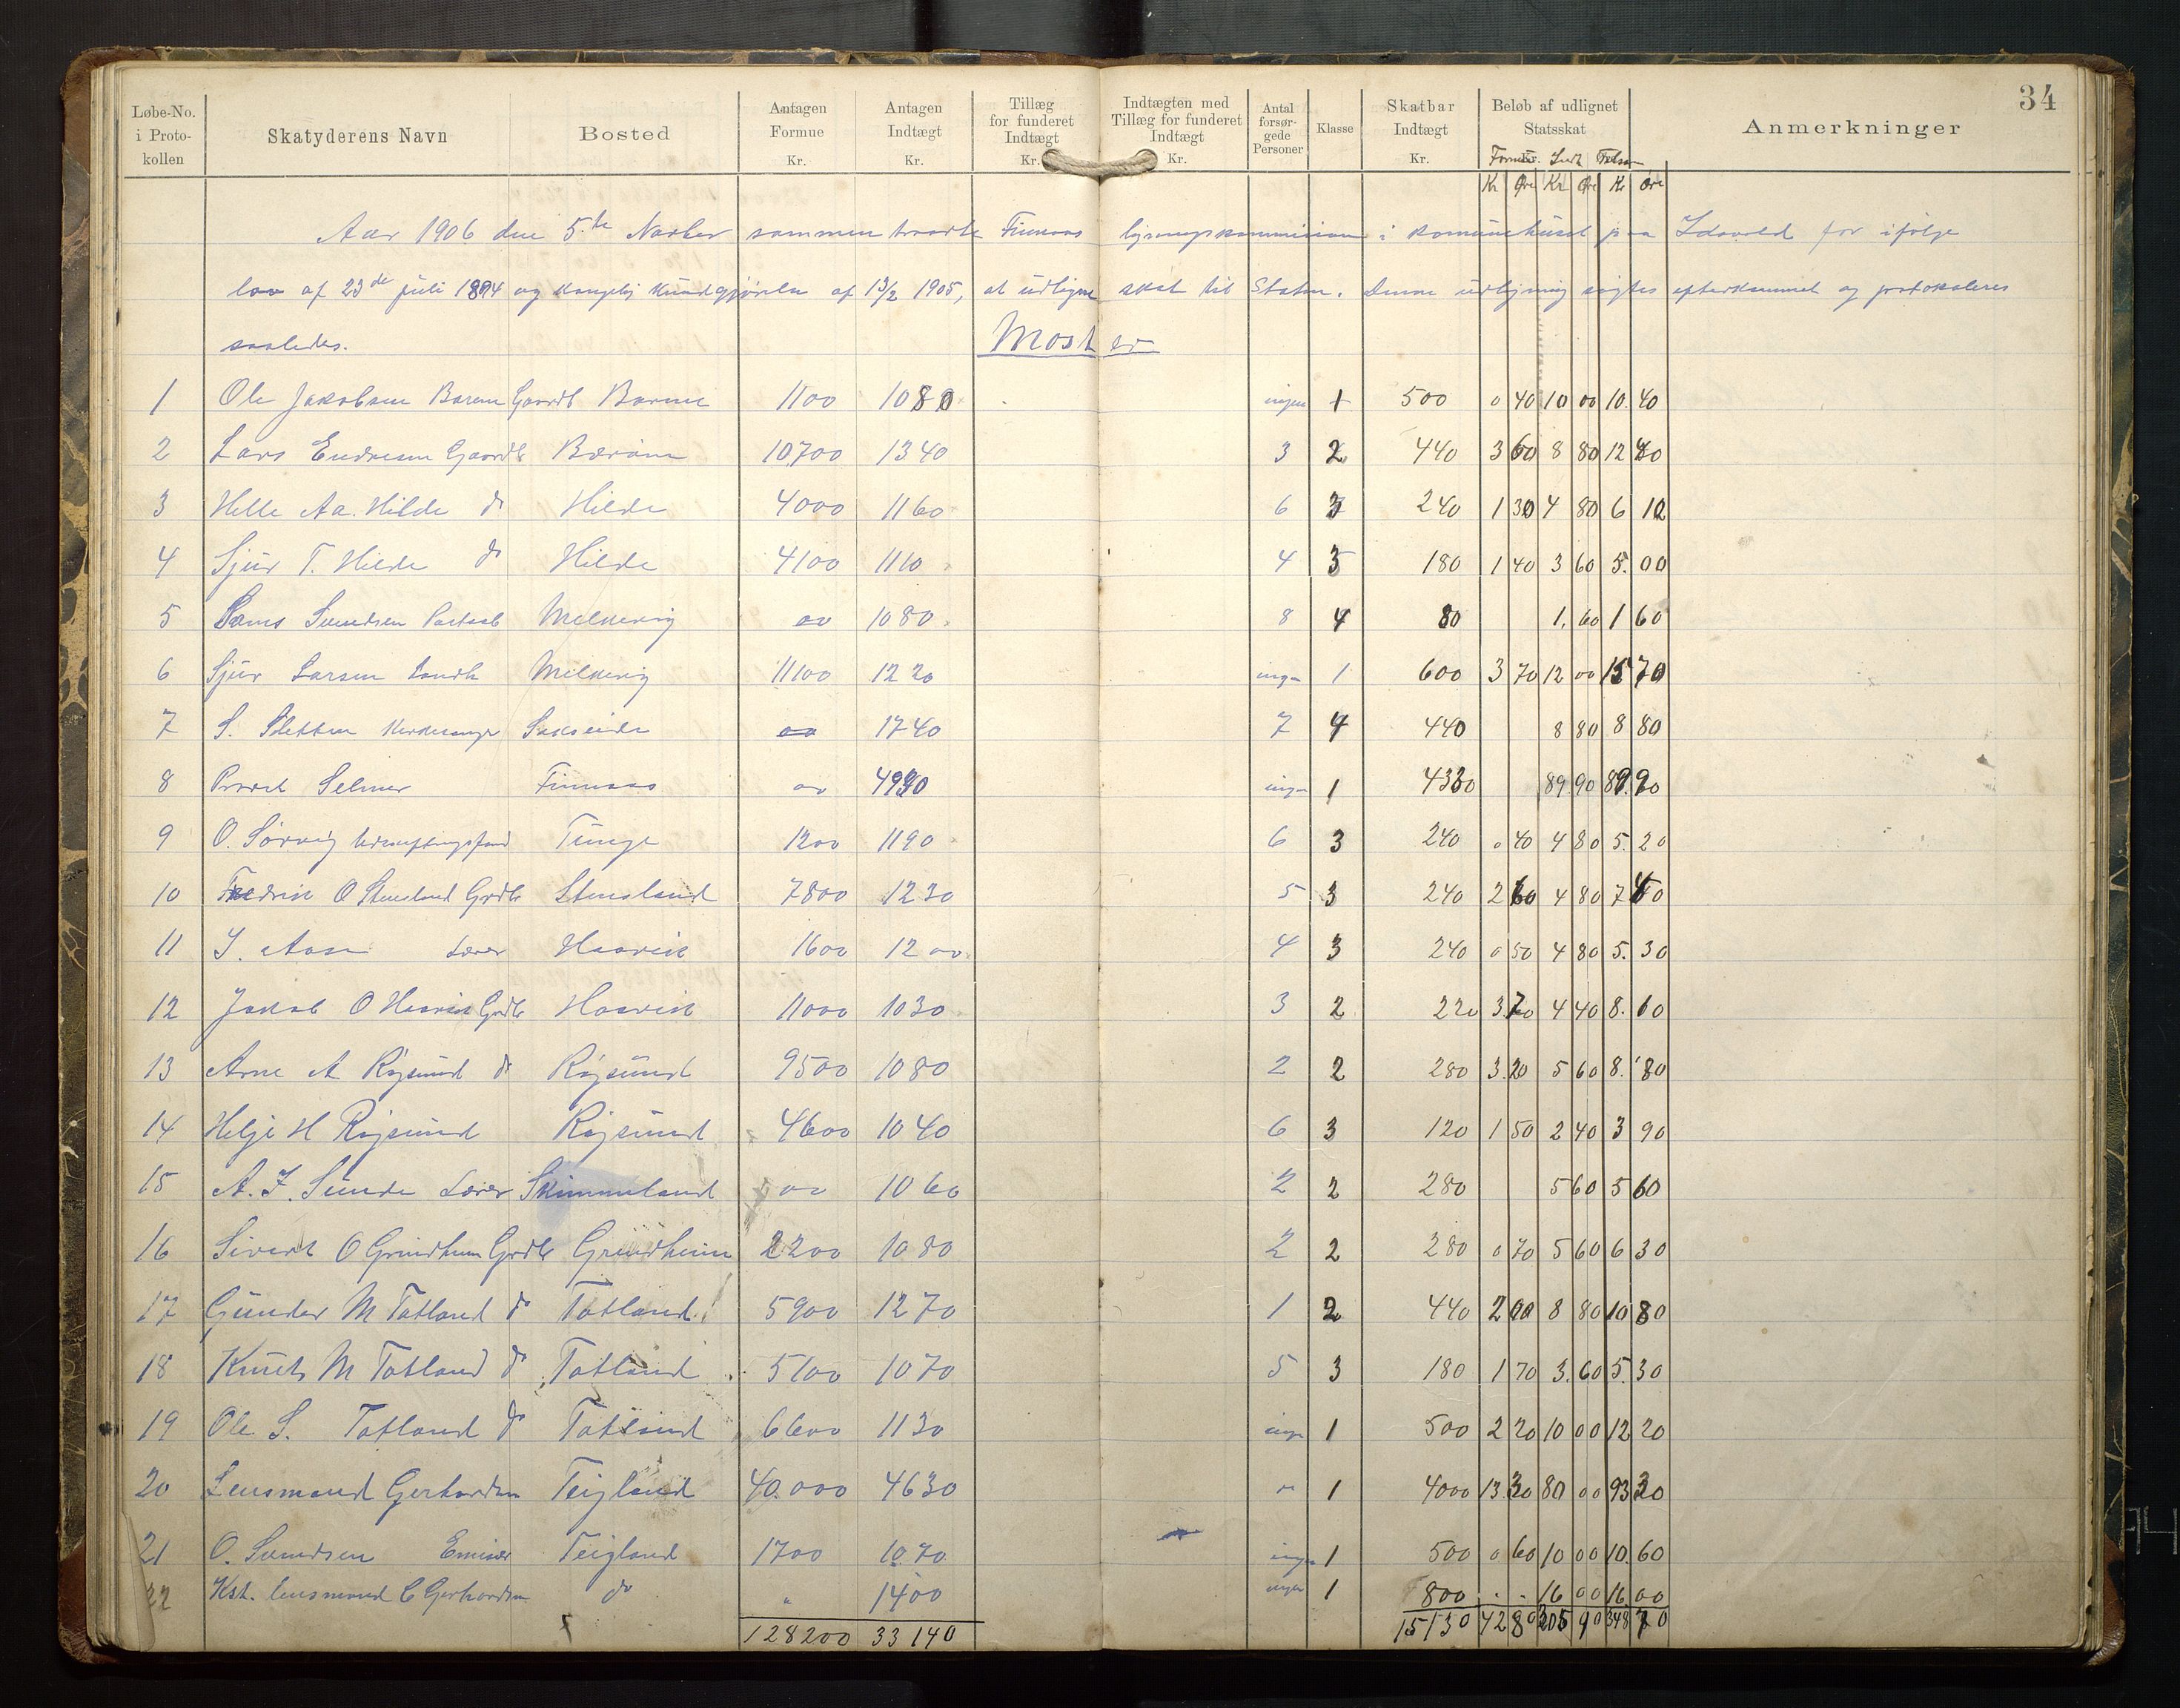 34
Løbe-No. i Protokollen | Skatyderens Navn | Bosted | Antagen Formue Kr. | Antagen Indtægt Kr. | Tillæg for funderet Indtægt Kr. | Indtægten med Tillæg for funderet Indtægt Kr. | Antal forsørgede Personer | Klasse | Skatbar Indtægt Kr. | Beløb af udlignet Statsskat | Anmerkninger
Formue Indt
Kr Øre Kr Øre Kr Øre
Aar 1906 den 5.te Novber sammen traadte Finnaas ligningskommission i komunehuset paa Idavold for ifølge
lov af 23de juli 1894 og kongelig kundgjørelse af 13/2 1905, at udligne skat til Staten. Denne utligning sagtes efterkommet og protokoleres
saaledes. Moster
1 Ole Jakobsen Barem Gaardb Barme 1100 1080 ingen 1 500 0 40 10 00 10. 40
2 Lars Endresen Gaardb Bærøen 10700 1340 3 2 440 3 60 8 80 12 40
3 Helle Aa. Hilde do Hilde 4000 1160 6 3 240 1 30 4 80 6 10
4 Sjur T. Hilde do Hilde 4100 1110 4 3 180 1 40 3 60 5. 00
5 Svendsen Melkevig 1080 8 4 80 1. 60 1 60
6 Sjur Larsen Landh Melkevig 11100 1220 ingen 1 600 3 70 12 00 15 70
7 S. Sletten Kirkesanger Sakseide 1740 7 4 440 8 80 8 80
8 Provst Selmer Finnaas 4990 ingen 1 4330 89 90 89. 90
9 O. Sørvig Tunge 1200 1190 6 3 240 0 40 4 80 5. 20
10 Fredrik O Stensland Grdb Stensland 7800 1230 5 3 240 2 60 4 80 7 40
11 I. Aase Lærer Haavik 1600 1200 4 3 240 0 50 4 80 5. 30
12 Jakob O Haavik Grdb Haavik 11000 1030 3 2 220 3. 70 4 40 8. 10
13 Arne A Røgsund do Røgsund 9500 1080 2 2 280 3. 20 5 60 8. 80
14 Helge H Røgsund Røgsund 4600 1040 6 3 120 1 50 2 40 3 90
15 A. I. Sunde Lærer Skimmeland 1060 2 2 280 5 60 5 60
16 Sivert O Grindheim Grdb Grindheim 2200 1080 2 2 280 0 70 5 60 6 30
17 Gunder M Totland do Totland 5900 1270 1 2 440 2 00 8 80 10 80
18 Knut M Totland do Totland 5100 1070 5 3 180 1 70 3. 60 5. 30
19 Ole S. Totland do Totland 6600 1130 ingen 1 500 2 20 10 00 12 20
20 Lensmand Gerhardsen Teigland 40.000 4630 " 1 4000 13. 30 80 00 93 30
21 O. Svendsen Emisær Teigland 1700 1070 ingen 1 500 0 60 10 00 10. 60
22 Kst. lensmand C Gerhardsen do " 1400 ingen 1 800 - - 16 00 16. 00
128200 33140 15130 42 80 305 90 348 70